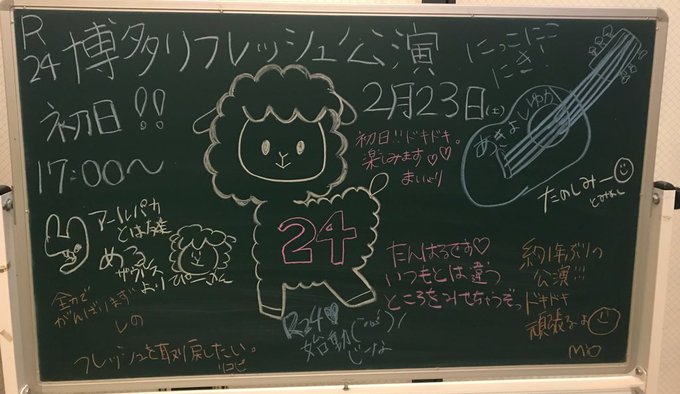 R24 博多リフレッシュ公演
にっこにこ
にき!
初日!!
17:00〜
2月23日(土)
初日!!ドキドキ。
楽しみます♡♡
まいこり
あきよしゆか
たのしみー
24
アールパカ
とは友達
める
たんはるです♡
いつもとは違う
ところをみせちゃうぞっ
約1年ぶりの
公演!!!
ドキドキ
頑張るよ
MiO
全力で
がんばります
しの
R24♡
始動
じーな
フレッシュを取り戻したい。